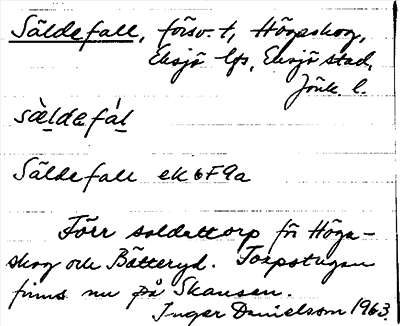 Säldefall, försv. t, Högaskog,
Eksjö lfs, Eksjö stad,
Jönk l.
sä̀ldefál
Säldefall ek 6F9a
Förr soldattorp för Höga-
skog och Bätteryd. Torpstugan
finns nu på Skansen.
Inger Danielsson 1963.